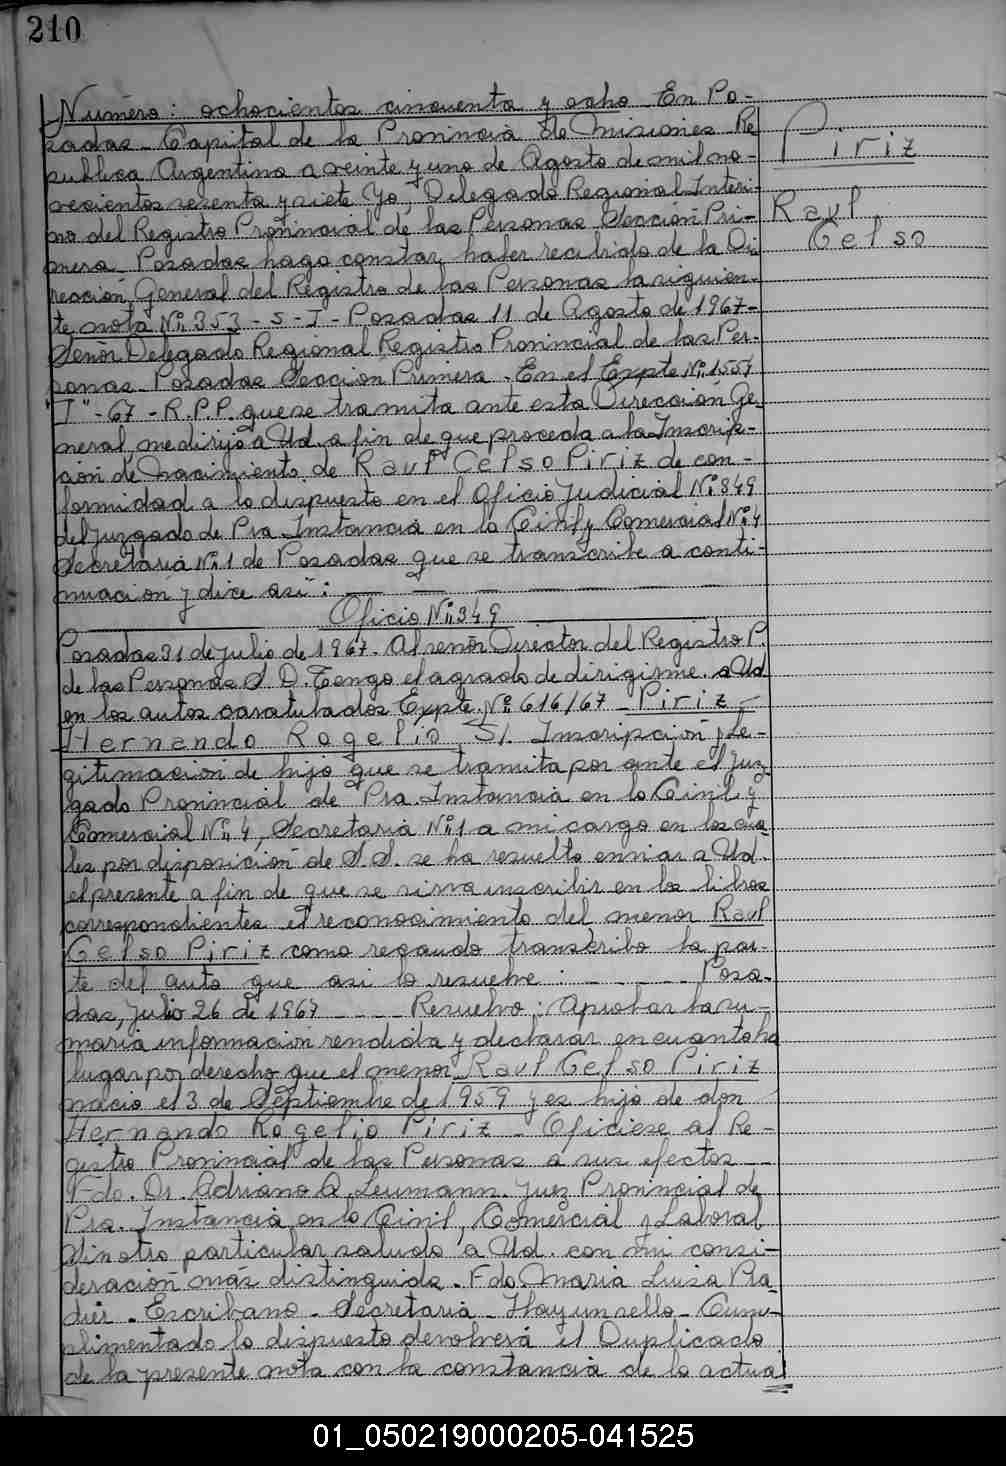 210
Número: ochocientos cincuenta y ocho En Po-
sadas - Capital de la Provincia de Misiones Re
publica Argentina a veinte y uno de Agosto de mil no-
vecientos sesenta y siete Yo, Delegado Regional Interi-
no del Registro Provincial de las Personas Sección Pri-
mera - Posadas hago constar haber recibido de la Di
rección General del Registro de las Personas la siguien-
te nota Nº 353 - S - I - Posadas 11 de Agosto de 1967 -
Señor Delegado Regional Registro Provincial de las Per-
sonas - Posadas Sección Primera - En el Expte Nº 1557
"I" - 67 - R.P.P. que se tramita ante esta Dirección Ge-
neral, me dirijo a Ud. a fin de que proceda a la Inscrip-
ción de Nacimiento de Raul Celso Piriz de con-
formidad a lo dispuesto en el Oficio Judicial Nº 349
del Juzgado de Pra. Instancia en lo Civil y Comercial Nº 4
Secretaria Nº 1 de Posadas que se transcribe a conti-
nuación y dice asi":
Oficio Nº 349
Posadas 31 de Julio de 1967. Al señor Director del Registro P.
de las Personas S. D. Tengo el agrado de dirigirme a Ud
en los autos caratulados Expte. Nº 616/67 - Piriz
Hernando Rogelio S/. Inscripción y Le-
gitimación de hijo que se tramita por ante el Juz-
gado Provincial de Pra. Instancia en lo Civil y
Comercial Nº 4, Secretaria Nº 1 a mi cargo en los cua-
les por disposición de S.S. se ha resuelto enviar a Ud.
el presente a fin de que se sirva inscribir en los libros
correspondientes el reconocimiento del menor Raul
Celso Piriz como recaudo transcribo la par-
te del auto que asi lo resuelve: - - - - - Posa-
das, Julio 26 de 1967 - - - - Resuelvo: Aprobar la su-
maria informacion rendida y declarar en cuanto ha
lugar por derecho que el menor Raul Celso Piriz
nacio el 3 de Septiembre de 1959 y es hijo de don
Hernando Rogelio Piriz - Oficiese al Re-
gistro Provincial de las Personas a sus efectos -
Fdo. Dr. Adriano A. Leumann. Juez Provincial de
Pra. Instancia en lo Civil, Comercial y Laboral
Sin otro particular saludo a Ud. con mi consi-
deración más distinguida. Fdo. Maria Luisa Pra
dier - Escribano - Secretaria - Hay un sello - Cum-
plimentado lo dispuesto devolverá el Duplicado
de la presente nota con la constancia de lo actua
Piriz
Raul
Celso
01_050219000205-041525